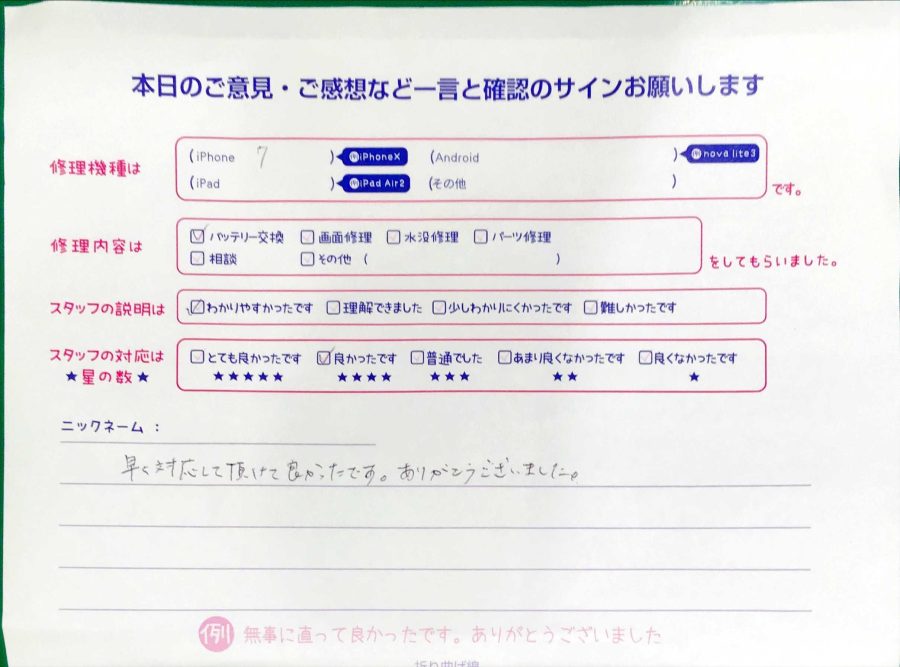 本日のご意見・ご感想など一言と確認のサインお願いします
修理機種は (iPhone 7 ) 例iPhoneX (Android ) 例nova lite3
(iPad ) 例iPad Air2 (その他 ) です。
修理内容は バッテリー交換 画面修理 水没修理 パーツ修理
相談 その他 ( ) をしてもらいました。
スタッフの説明は わかりやすかったです 理解できました 少しわかりにくかったです 難しかったです
スタッフの対応は とても良かったです 良かったです 普通でした あまり良くなかったです 良くなかったです
★星の数★ ★★★★★ ★★★★ ★★★ ★★ ★
ニックネーム：
早く対応して頂けて良かったです。ありがとうございました。
例 無事に直って良かったです。ありがとうございました
折り曲げ線